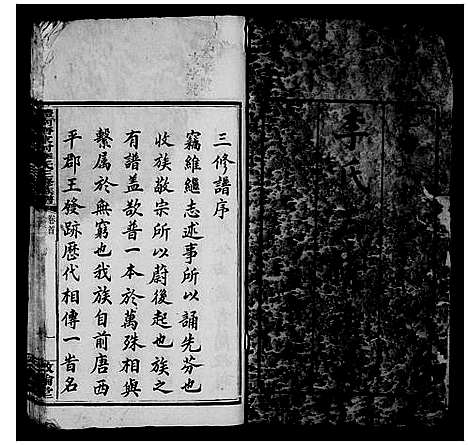 李氏
三修譜序
竊維繼志述事所以誦先芬也
收族敬宗所以蔚後起也族之
有譜蓋欲普一本於萬殊相與
繫属於無窮也我族自前唐西
平郡王發跡歷代相傳一省名
卷首